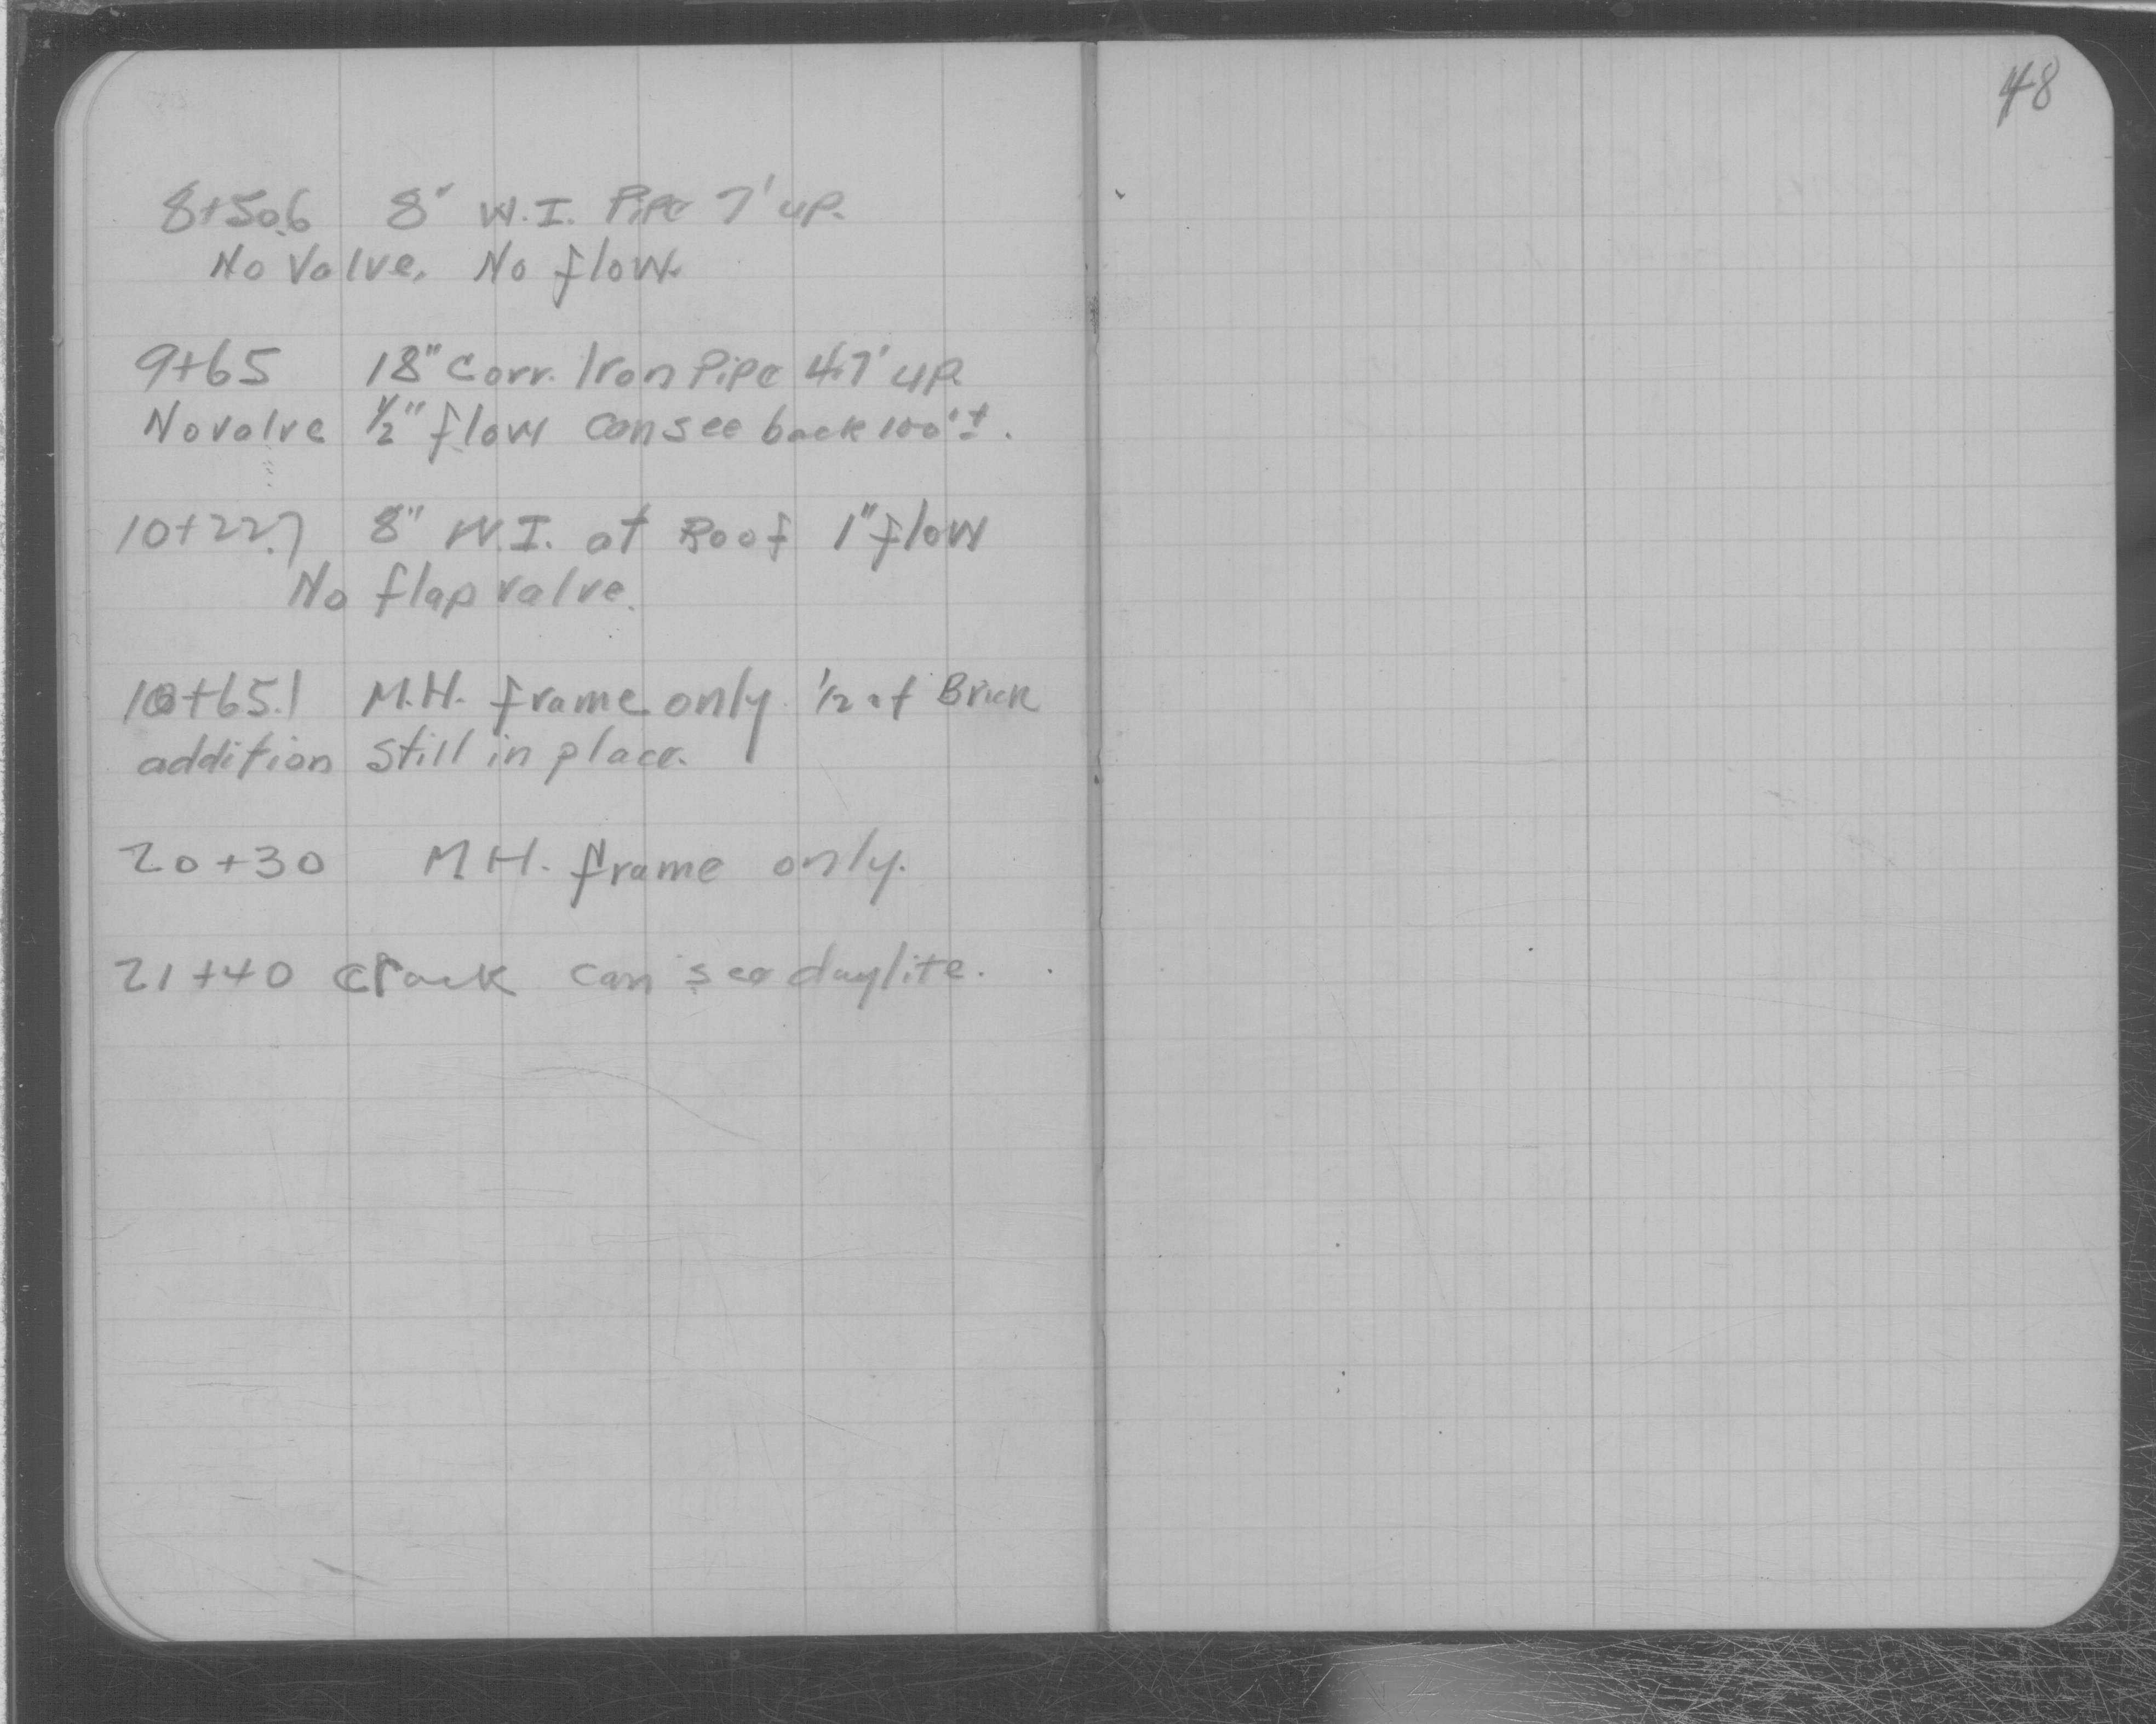 48
8+50.6 8" W.I. Pipe 7' up.
No Valve. No flow.
9+65 18" Corr. Iron Pipe 4.7' up
No valve 1/2" flow can see back 100'±.
10+22.7 8" W.I. at Roof 1" flow
No flap valve.
10+65.1 M.H. frame only. 1/2 of Brick
addition still in place.
20+30 M.H. frame only.
21+40 crack can see daylite.